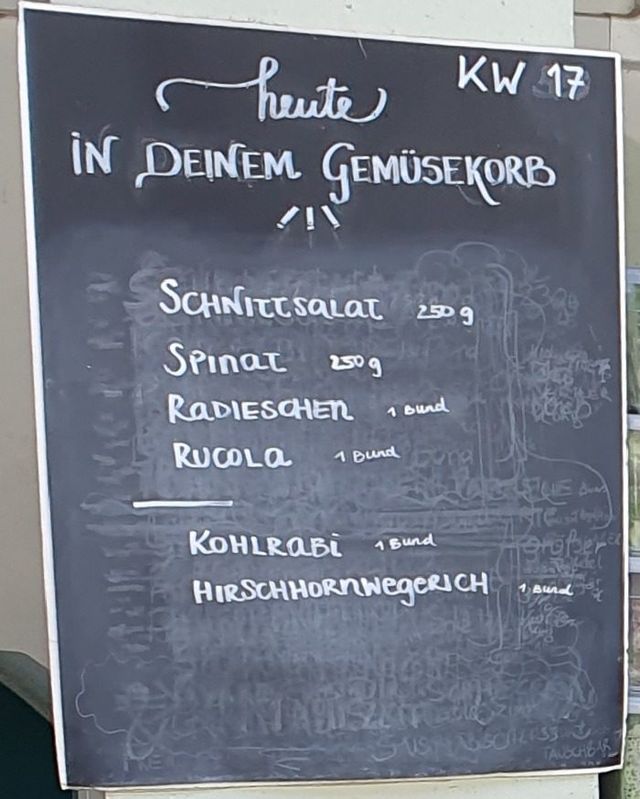 KW 17
heute
IN DEINEM GEMÜSEKORB
SCHNITTSALAT 250 g
SPINAT 250 g
RADIESCHEN 1 Bund
RUCOLA 1 Bund
KOHLRABI 1 Bund
HIRSCHHORNWEGERICH 1 Bund
TAUSCHBAR